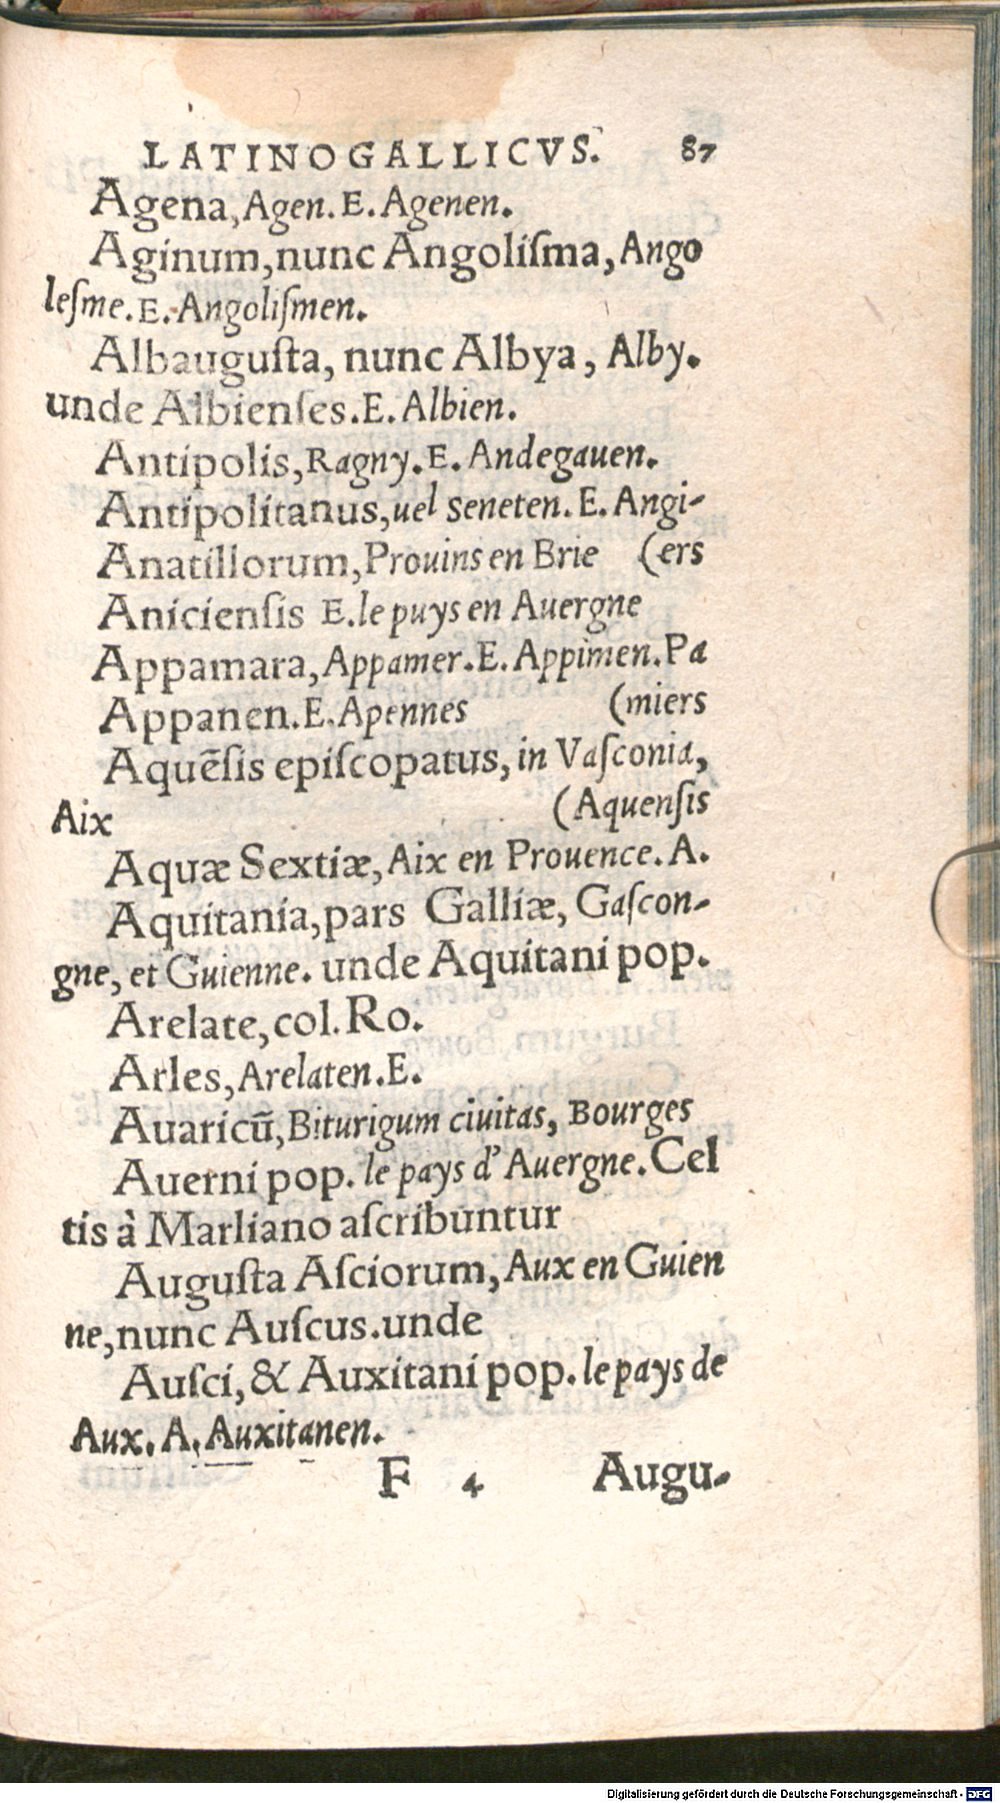 LATINOGALLICVS. 87
Agena, Agen. E. Agenen.
Aginum, nunc Angoliſma, Ango
leſme. E. Angoliſmen.
Albauguſta, nunc Albya, Alby.
unde Albienſes. E. Albien.
Antipolis, Ragny. E. Andegauen.
Antipolitanus, uel Seneten. E. Angi-
Anatillorum, Prouins en Brie (ers
Anicienſis E. le puys en Auergne
Appamara, Appamer. E. Appimen. Pa
Appanen. E. Apennes (miers
Aquēſis epiſcopatus, in Vaſconia,
Aix (Aquenſis
Aquæ Sextiæ, Aix en Prouence. A.
Aquitania, pars Galliæ, Gaſcon-
gne, et Guienne. unde Aquitani pop.
Arelate, col. Ro.
Arles, Arelaten. E.
Auaricū, Biturigum ciuitas, Bourges
Auerni pop. le pays d'Auergne. Cel
tis à Marliano aſcribuntur
Auguſta Aſciorum, Aux en Guien
ne, nunc Auſcus. unde
Auſci, & Auxitani pop. le pays de
Aux. A. Auxitanen.
F 4 Augu-
Digitalisierung gefördert durch die Deutsche Forschungsgemeinschaft - DFG